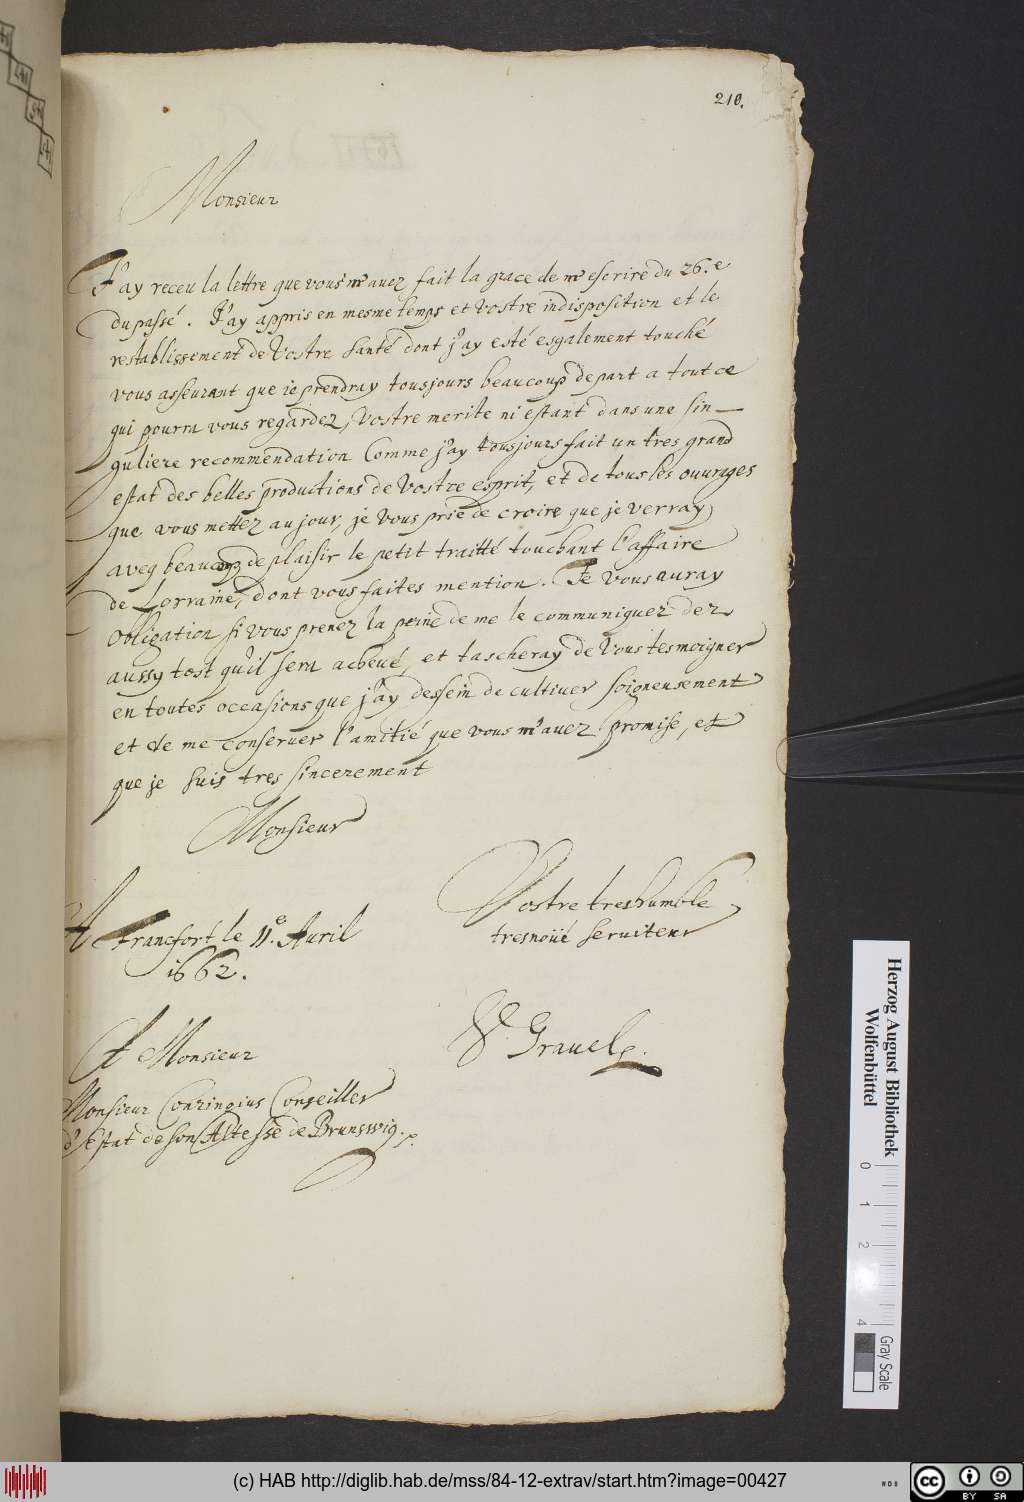 210.
Monsieur
J'ay receu la lettre que vous m'auez fait la grace de m'escrire du 26.e
du passé. J'ay appris en mesme temps et vostre indisposition et le
restablissement de Vostre santé dont j'ay esté esgalement touché
vous asseurant que ie prendray tousjours beaucoup de part a tout ce
qui pourra vous regarder, Vostre merite m'estant dans une sin-
guliere recommendation Comme j'ay tousjours fait un tres grand
estat des belles productions de Vostre esprit, et de tous les ouurages
que vous mettez au jour, je vous prie de croire que je verray
aveq beaucoup de plaisir le petit traitté touchant l'affaire
de Lorraine, dont vous faites mention. Je vous auray
obligation si vous prenez la peine de me le communiquer dez
aussy tost qu'il sera acheué, et tascheray de vous tesmoigner
en toutes occasions que j'ay dessein de cultiuer soigneusement
et de me conseruer l'amitié que vous m'auez promise, et
que je suis tres sincerement
Monsieur
Vostre treshumble
tres
seruiteur
A francfort le 11.e Auril
1662.
Grauel
A Monsieur
Monsieur Conringius Conseiller
d'estat de son Altesse de Brunswig.
Herzog August Bibliothek
Wolfenbüttel
0 1 2 4
Gray Scale
(c) HAB http://diglib.hab.de/mss/84-12-extrav/start.htm?image=00427
cc BY SA